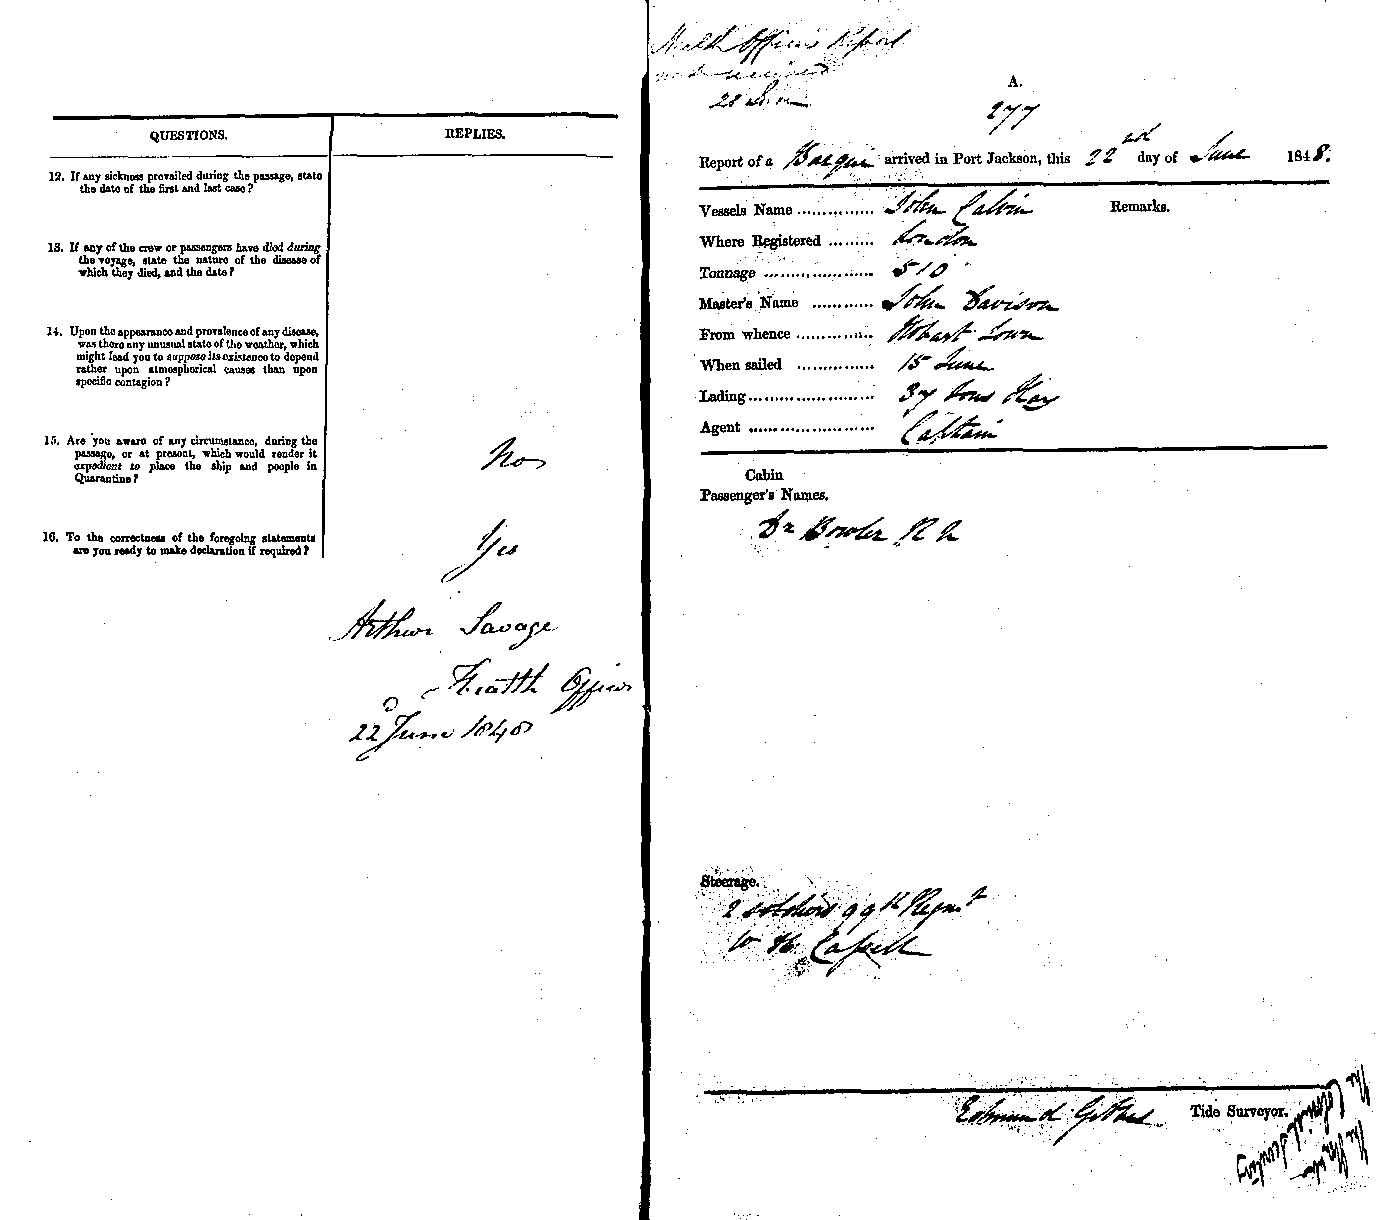 QUESTIONS.
REPLIES.
12. If any sickness prevailed during the passage, state
the date of the first and last case?
13. If any of the crew or passengers have died during
the voyage, state the nature of the disease of
which they died, and the date?
14. Upon the appearance and prevalence of any disease,
was there any unusual state of the weather, which
might lead you to suppose its existence to depend
rather upon atmospherical causes than upon
specific contagion?
15. Are you aware of any circumstance, during the
passage, or at present, which would render it
expedient to place the ship and people in
Quarantine?
No
16. To the correctness of the foregoing statements
are you ready to make declaration if required?
Yes
Arthur Savage
Health Officer
22 June 1848
Health Officers Report
received
A.
277
Report of a Barque arrived in Port Jackson, this 22nd day of June 1848.
Vessels Name ............... John Calvin
Remarks.
Where Registered ......... London
Tonnage ..................... 510
Master's Name ............ John Davison
From whence ............... Hobart Town
When sailed ............... 15 June
Lading ........................ 37 tons Hay
Agent ........................ Captain
Cabin
Passenger's Names.
Dr Bowler R N
Steerage.
2 soldiers 99th Regmt
W H
Edmund
Tide Surveyor.
The Colonial Secretary